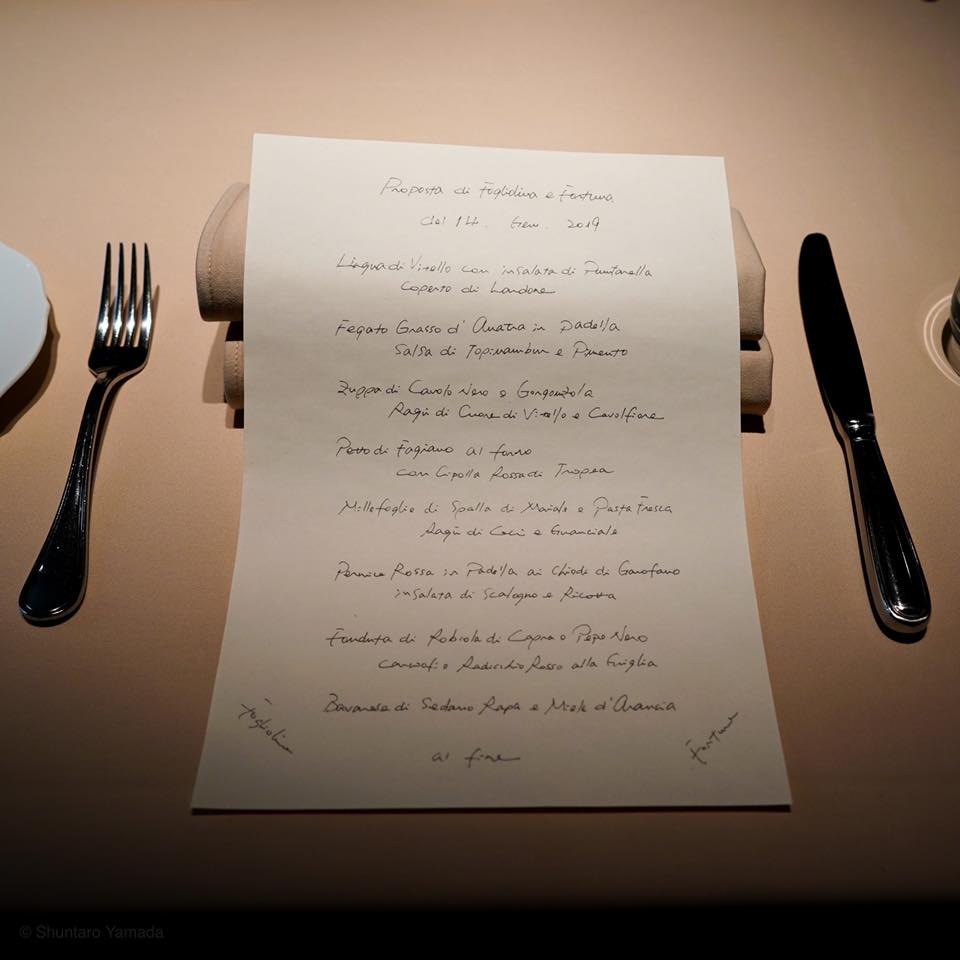 Proposta di Fogliolina e Fortuna
del 14. Gen. 2019
Lingua di Vitello con insalata di Puntarella
Coperto di Lardone
Fegato Grasso d'Anatra in Padella
Salsa di Topinambur e Pimento
Zuppa di Cavolo Nero e Gorgonzola
Ragù di Cuore di Vitello e Cavolfiore
Petto di Fagiano al forno
con Cipolla Rossa di Tropea
Millefoglie di Spalla di Maiale e Pasta Fresca
Ragù di Ceci e Guanciale
Pernice Rossa in Padella ai Chiodi di Garofano
insalata di Scalogno e Ricotta
Fonduta di Robiola di Capra e Pepe Nero
Carciofi e Radicchio Rosso alla Griglia
Bavarese di Sedano Rapa e Miele d'Arancia
Fogliolina
Fortuna
al fine
© Shuntaro Yamada